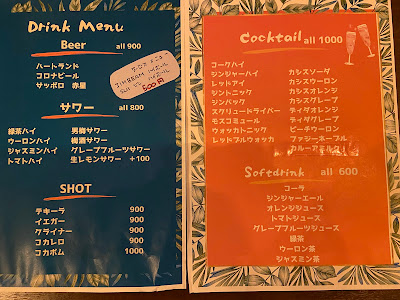 Drink Menu
Beer all 900
ハートランド
コロナビール
サッポロ 赤星
JIM BEAM ハイボール
500円
サワー all 800
緑茶ハイ 男梅サワー
ウーロンハイ 梅酒サワー
ジャスミンハイ グレープフルーツサワー
トマトハイ 生レモンサワー +100
SHOT
テキーラ 900
イエガー 900
クライナー 900
コカレロ 900
コカボム 1000
Cocktail all 1000
コークハイ
ジンジャーハイ カシスソーダ
レッドアイ カシスウーロン
ジントニック カシスオレンジ
ジンバック カシスグレープ
スクリュードライバー ティタオレンジ
モスコミュール ティタグレープ
ウォッカトニック ピーチウーロン
レッドブルウォッカ ファジーネーブル
カルーアミルク
Softdrink all 600
コーラ
ジンジャーエール
オレンジジュース
トマトジュース
グレープフルーツジュース
緑茶
ウーロン茶
ジャスミン茶